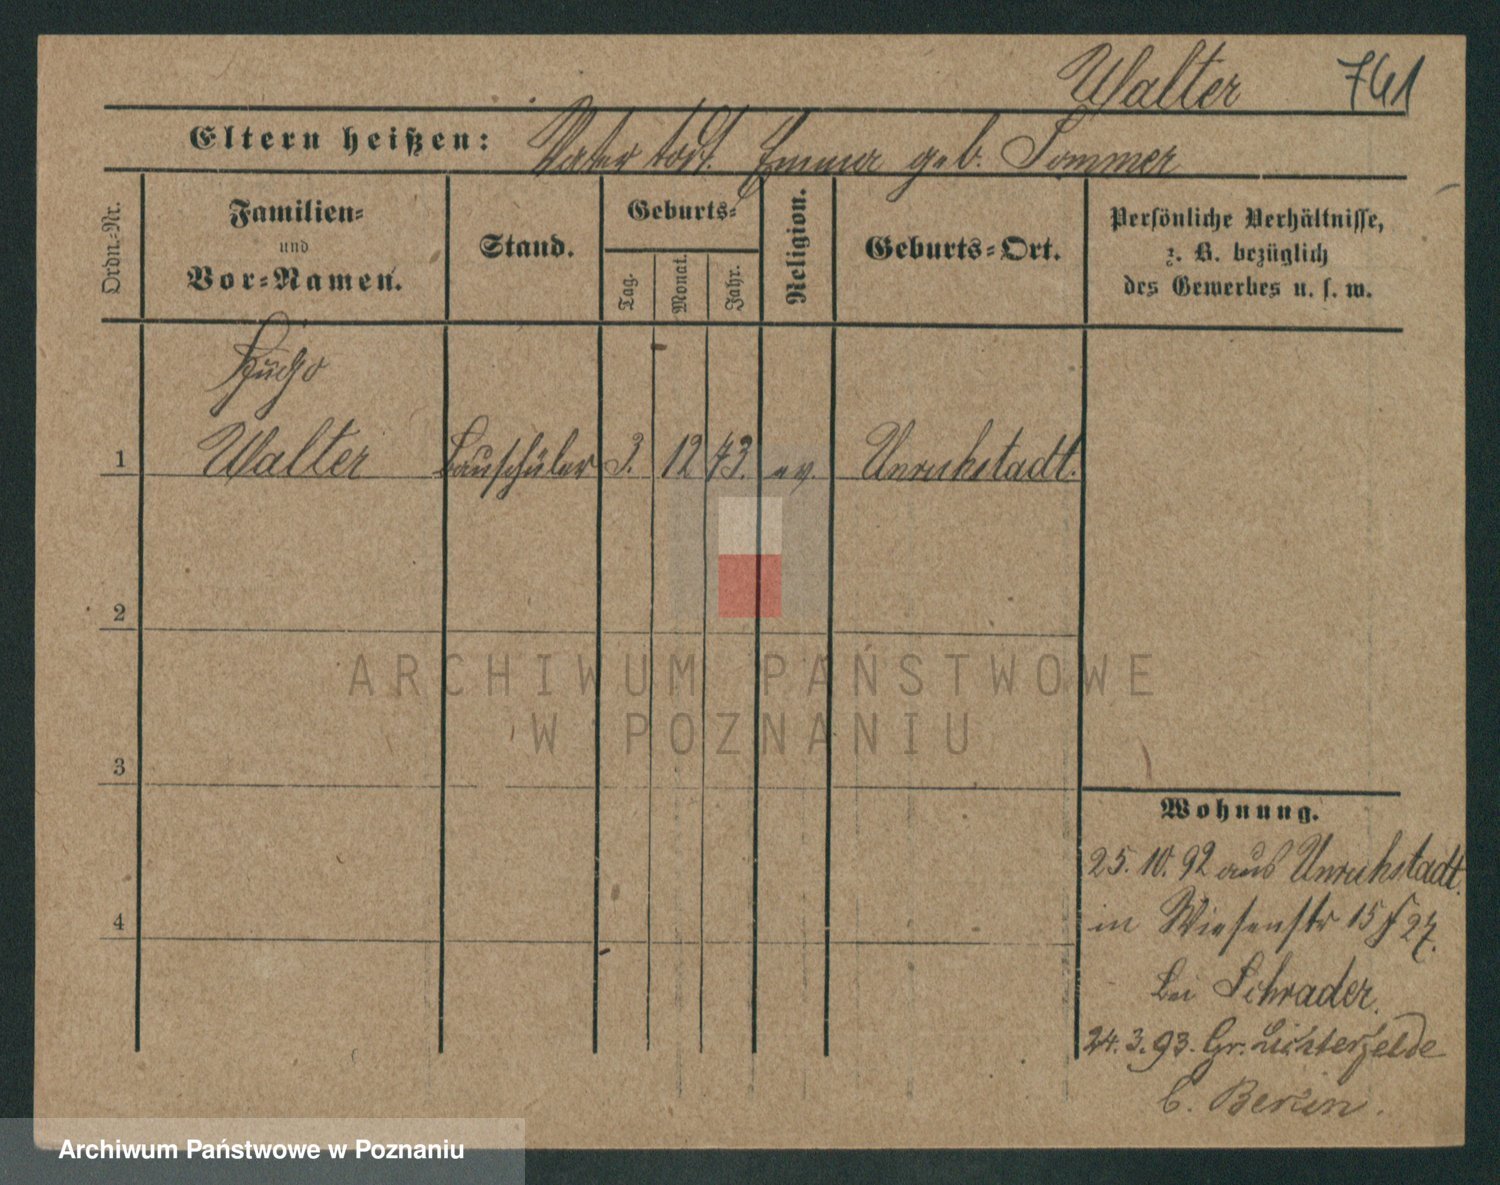 Walter 741
Eltern heißen: Vater todt. Emma geb. Sommer
Ordn.-Nr.
Familien-
und
Vor-Namen.
Stand.
Geburts-
Tag.
Monat.
Jahr.
Religion.
Geburts-Ort.
Persönliche Verhältnisse,
z. B. bezüglich
des Gewerbes u. s. w.
Hugo
1 Walter Bauschüler 3. 12 73. ev. Unruhstadt.
2
3
4
Wohnung.
25. 10. 92 aus Unruhstadt.
in Wiesenstr 15 27.
bei Schrader.
24. 3. 93. Gr. Lichterfelde
b. Berlin.
ARCHIWUM PAŃSTWOWE
W POZNANIU
Archiwum Państwowe w Poznaniu